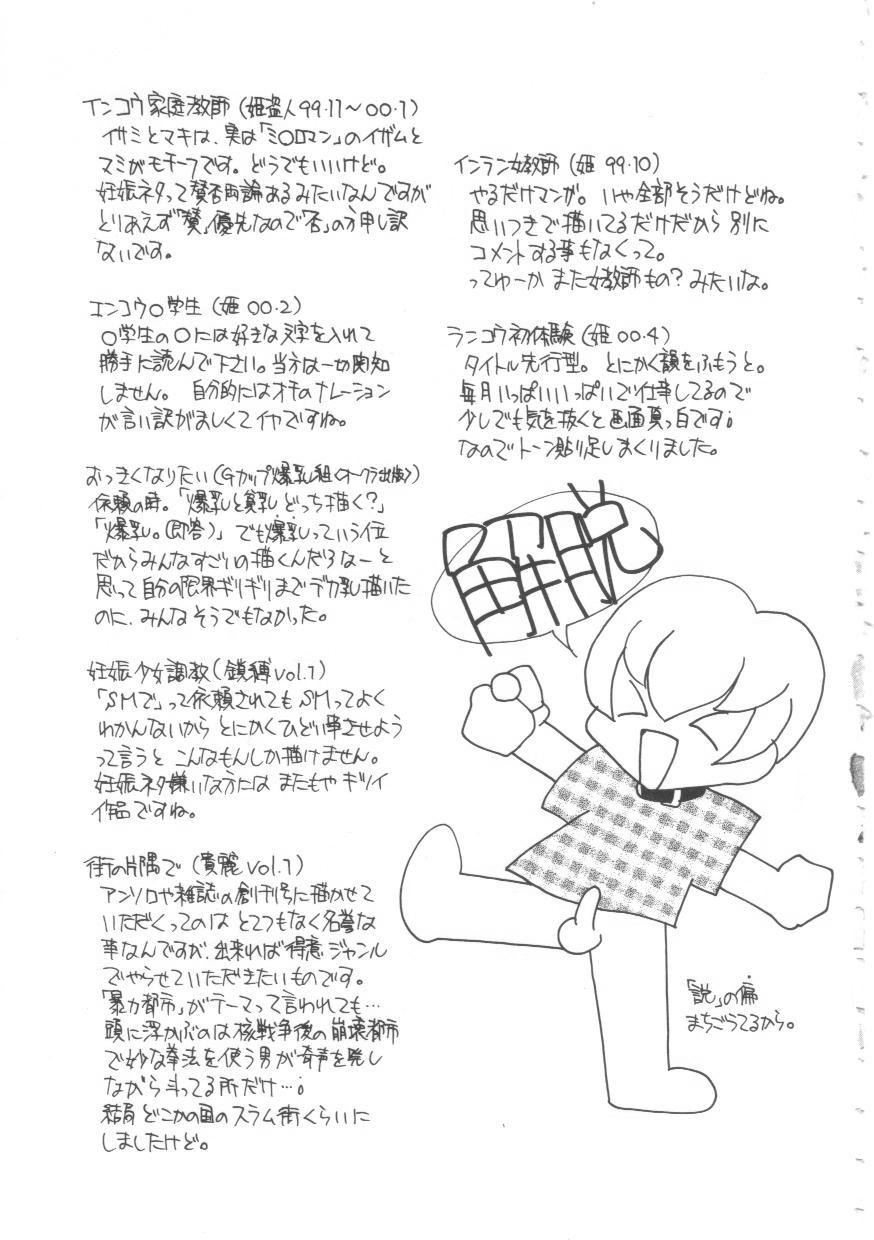 インコウ家庭教師（姫盗人99.11～00.1）
イサミとマキは、実は「ミ○ロマン」のイザムと
マミがモチーフです。どうでもいいけど。
妊娠ネタって賛否両論あるみたいなんですが
とりあえず「賛」優先なので「否」の方申し訳
ないです。
エンコウ○学生（姫00.2）
○学生の○には好きな文字を入れて
勝手に読んで下さい。当方は一切関知
しません。自分的にはオチのナレーション
が言い訳がましくてイヤですね。
おっきくなりたい（Gカップ爆乳組＜オークラ出版＞）
依頼の時。「爆乳と貧乳どっち描く？」
「爆乳。（即答）」でも爆乳っていう位
だからみんなすごいの描くんだろなーと
思って自分の限界ギリギリまでデカ乳描いた
のに、みんなそうでもなかった。
妊娠少女調教（鎖縛vol.1）
「SMで」って依頼されてもSMってよく
わかんないからとにかくひどい事させよう
って言うとこんなもんしか描けません。
妊娠ネタ嫌いな方にはまたもやキツイ
作品ですね。
街の片隅で（貴麗vol.1）
アンソロや雑誌の創刊号に描かせて
いただくってのはとてつもなく名誉な
事なんですが、出来れば得意ジャンル
でやらせていただきたいものです。
「暴力都市」がテーマって言われても…
頭に浮かぶのは核戦争後の崩壊都市
で妙な拳法を使う男が奇声を発し
ながら斗ってる所だけ…。
結局どこかの国のスラム街くらいに
しましたけど。
インラン女教師（姫99.10）
やるだけマンガ。いや全部そうだけどね。
思いつきで描いてるだけだから別に
コメントする事もなくって。
ってゆーかまた女教師もの？みたいな。
ランコウ初体験（姫00.4）
タイトル先行型。とにかく韻をふもうと。
毎月いっぱいいっぱいで仕事してるので
少しでも気を抜くと画面真っ白です。
なのでトーン貼り足しまくりました。
解説
「説」の偏
まちごうてるから。